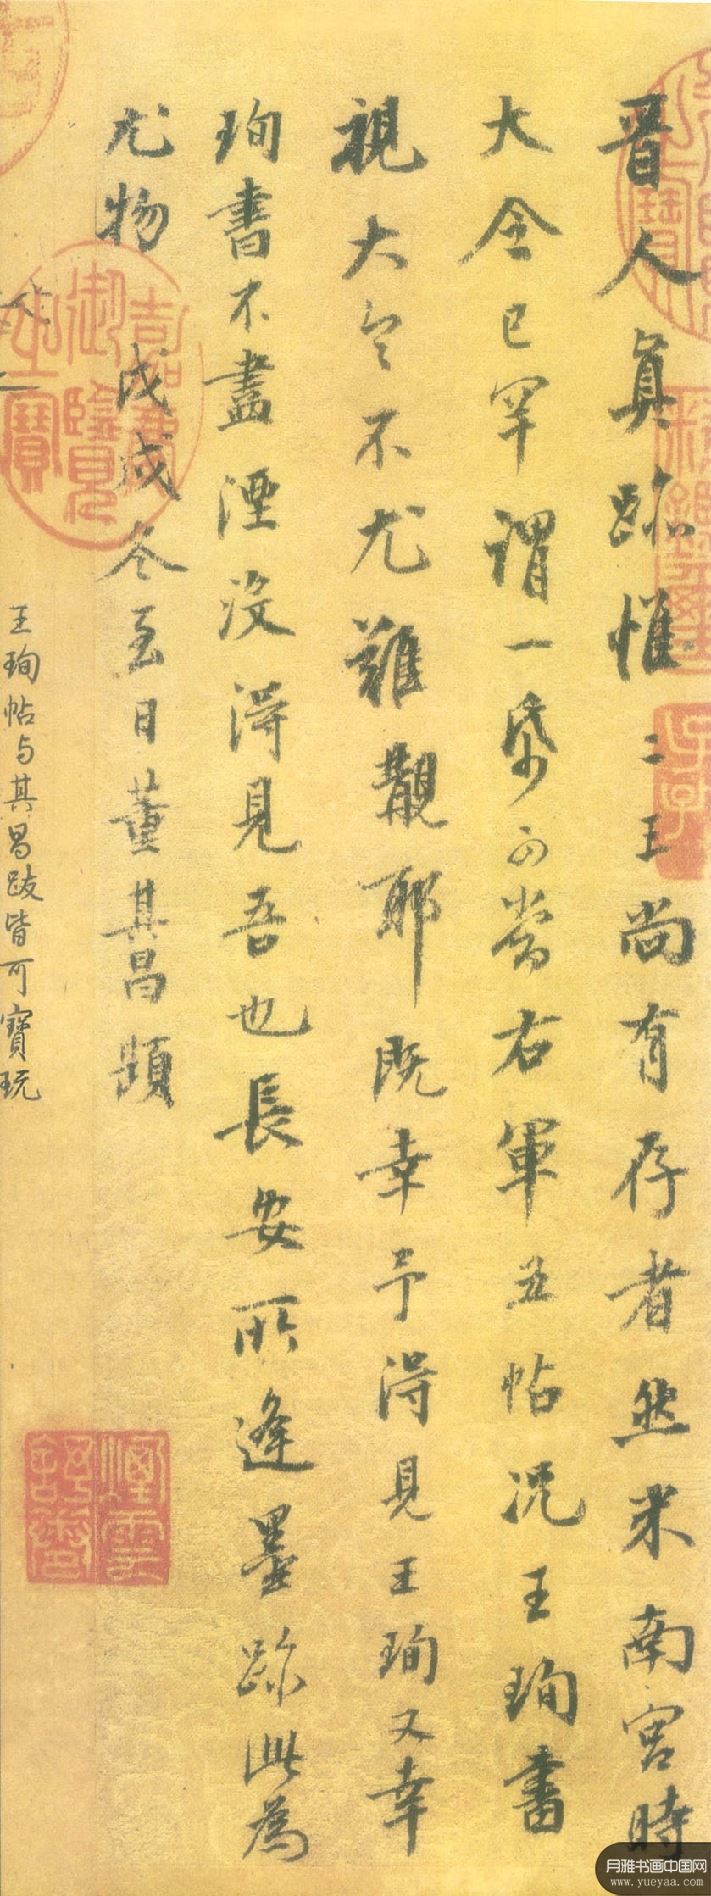 晋人真跡惟二王尚有存者然米南宮時
大令已罕謂一帋可當右軍五帖况王珣書
視大令不尤難覯耶既幸予得見王珣又幸
珣書不盡湮沒得見吾也長安所逢墨跡此為
尤物 戊戌冬至日董其昌題
王珣帖与其昌跋皆可寶玩
嘉慶御覽之寶
月雅书画中国网
www.yueyaa.com